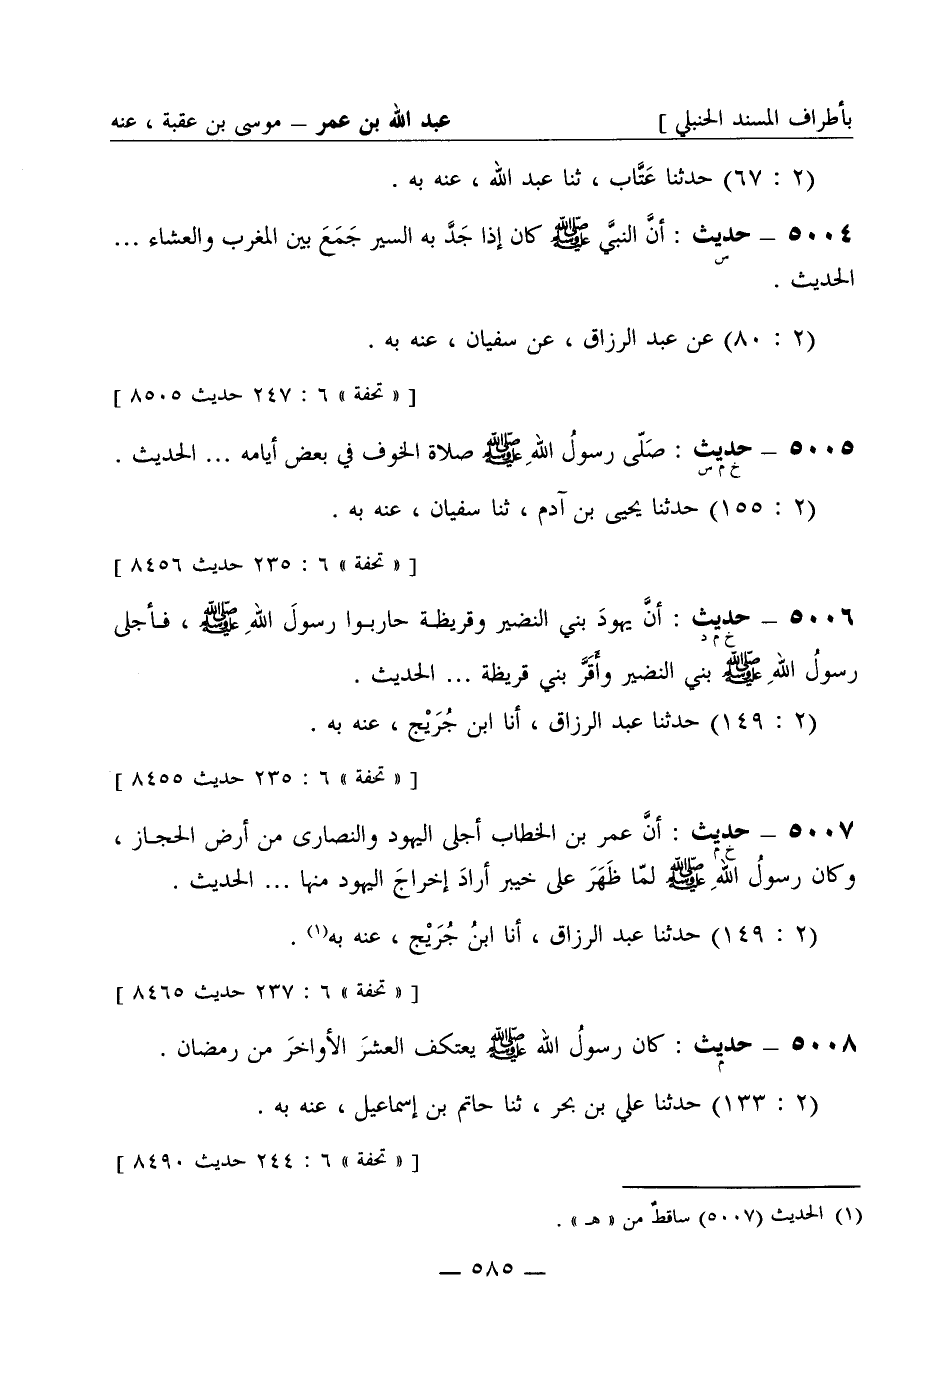 بأطراف المسند الحنبلي ] عبد الله بن عمر – موسى بن عقبة ، عنه
(٢ : ٦٧) حدثنا عَتَّاب ، ثنا عبد الله ، عنه به .
٥٠٠٤ – حديث : أنَّ النبيَّ ﷺ كان إذا جَدَّ به السير جَمَعَ بين المغرب والعشاء ...
س
الحديث .
(٢ : ٨٠) عن عبد الرزاق ، عن سفيان ، عنه به .
[ « تحفة » ٦ : ٢٤٧ حديث ٨٥٠٥ ]
٥٠٠٥ – حديث : صَلّى رسولُ اللهِ ﷺ صلاة الخوف في بعض أيامه ... الحديث .
خ م س
(٢ : ١٥٥) حدثنا يحيى بن آدم ، ثنا سفيان ، عنه به .
[ « تحفة » ٦ : ٢٣٥ حديث ٨٤٥٦ ]
٥٠٠٦ – حديث : أنَّ يهودَ بني النضير وقريظة حاربوا رسولَ اللهِ ﷺ ، فأجلى
خ م د
رسولُ اللهِ ﷺ بني النضير وأَقَرَّ بني قريظة ... الحديث .
(٢ : ١٤٩) حدثنا عبد الرزاق ، أنا ابن جُرَيْج ، عنه به .
[ « تحفة » ٦ : ٢٣٥ حديث ٨٤٥٥ ]
٥٠٠٧ – حديث : أنَّ عمر بن الخطاب أجلى اليهود والنصارى من أرض الحجاز ،
خ م
وكان رسولُ اللهِ ﷺ لمّا ظَهَرَ على خيبر أرادَ إخراجَ اليهود منها ... الحديث .
(٢ : ١٤٩) حدثنا عبد الرزاق ، أنا ابنُ جُرَيْج ، عنه به(١) .
[ « تحفة » ٦ : ٢٣٧ حديث ٨٤٦٥ ]
٥٠٠٨ – حديث : كان رسولُ الله ﷺ يعتكف العشرَ الأواخرَ من رمضان .
م
(٢ : ١٣٣) حدثنا علي بن بحر ، ثنا حاتم بن إسماعيل ، عنه به .
[ « تحفة » ٦ : ٢٤٤ حديث ٨٤٩٠ ]
(١) الحديث (٥٠٠٧) ساقطٌ من « هـ » .
– ٥٨٥ –